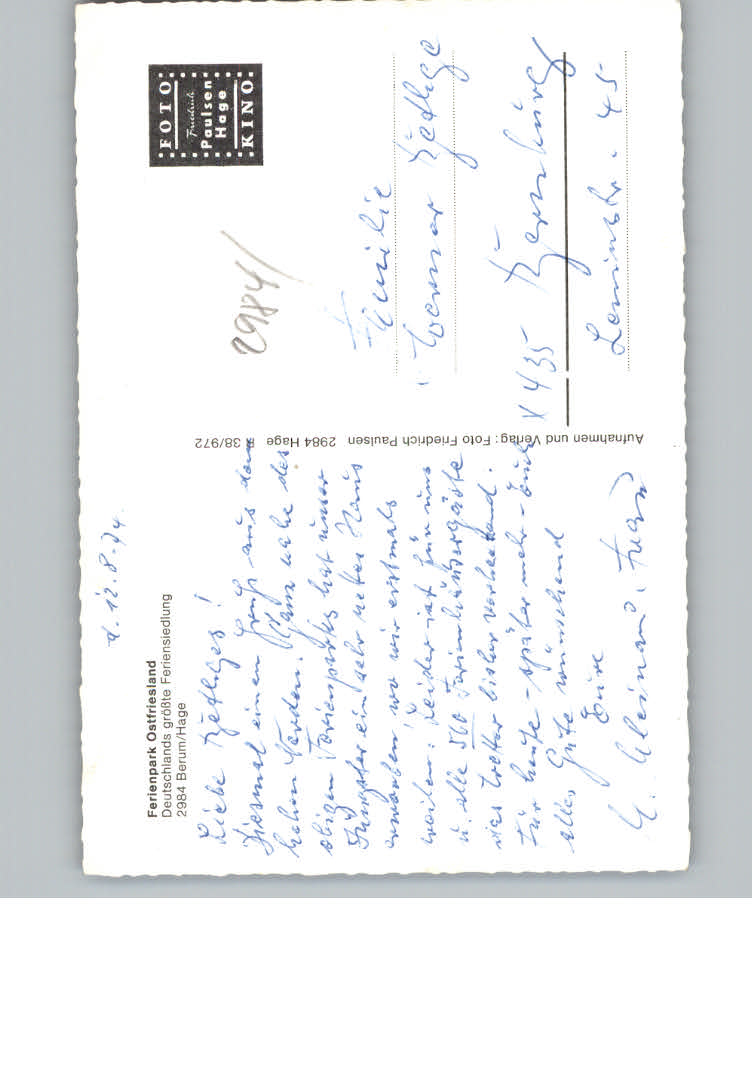 Ferienpark Ostfriesland
Deutschlands größte Feriensiedlung
2984 Berum/Hage
d. 12.8.74.
Liebe
Diesmal einen Gruß aus dem
hohen Norden. Ganz nahe des
obigen Ferienparks hat unser
Jüngster ein sehr nettes Haus
erworben, wo wir erstmals
weilen. Leider ist für uns
u. alle 560 Ferienhäusergäste
das Wetter bisher
Für heute - später mehr - Euch
alles Gute wünschend
Eure
Aufnahmen und Verlag: Foto Friedrich Paulsen 2984 Hage R 38/972
FOTO
Friedrich
Paulsen
Hage
KINO
2984/
Familie
Werner
X 435 Bernburg
Leninstr. 45